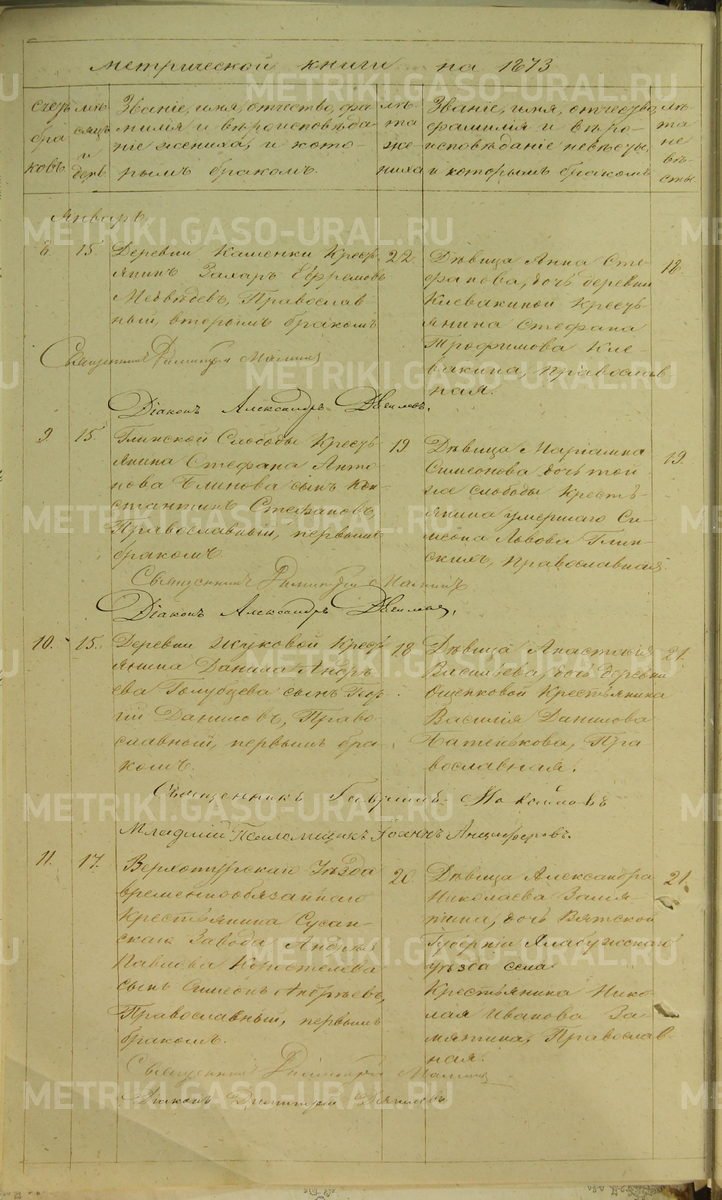 метрической книги на 1873
счетъ
бра
ковъ
мѣ
сяцъ
и
день
Званіе, имя, отчество, фа
милія и вѣроисповѣда
ніе жениха, и кото
рымъ бракомъ.
лѣ
та
же
ниха
Званіе, имя, отчество,
фамилія и вѣро
исповѣданіе невѣсты,
и которымъ бракомъ
лѣ
та
не
вѣ
сты
Январь
8 15. Деревни Каменки Крест
янинъ Захаръ Ефремовъ
Медвѣдевъ, Православ
ный, вторымъ бракомъ
22
Дѣвица Анна Сте
фанова, дочь деревни
Клевакиной Кресть
янина Стефана
Трофимова Кле
вакина, православ
ная.
18.
Священникъ Димитрій
Діаконъ Александръ
9 15. Глинской Слободы Кресть
янина Стефана Анто
нова сынъ Кон
стантинъ Стефановъ
Православный, первымъ
бракомъ
19
Дѣвица Маріамна
Симеонова дочь той
же слободы Кресть
янина умершаго Си
меона Львова Глин
скихъ, православная
19.
Священникъ Димитрій
Діаконъ Александръ
10. 15. Деревни Жуковой Крест
янина Данила Андре
ева Голубцева сынъ Геор
гій Даниловъ, Право
славный, первымъ бра
комъ.
18
Дѣвица Анастасія
Васильева, дочь деревни
Ощепковой Крестьянина
Василія Данилова
Батенькова, Пра
вославная.
21.
Священникъ Гавріилъ
Младшій Псаломщикъ Іоаннъ Анциферовъ.
11. 17. Верхотурскаго Уѣзда
временнообязаннаго
Крестьянина Сусан
скаго Завода Андрея
Павлова
сынъ Симеонъ Андреевъ,
Православный, первымъ
бракомъ.
20.
Дѣвица Александра
Николаева Замя
тина, дочь Вятской
Губерніи Елабужскаго
уѣзда села
Крестьянина Нико
лая Иванова За
мятина, Православ
ная.
21.
Священникъ Димитрій
Діаконъ Димитрій
METRIKI.GASO-URAL.RU